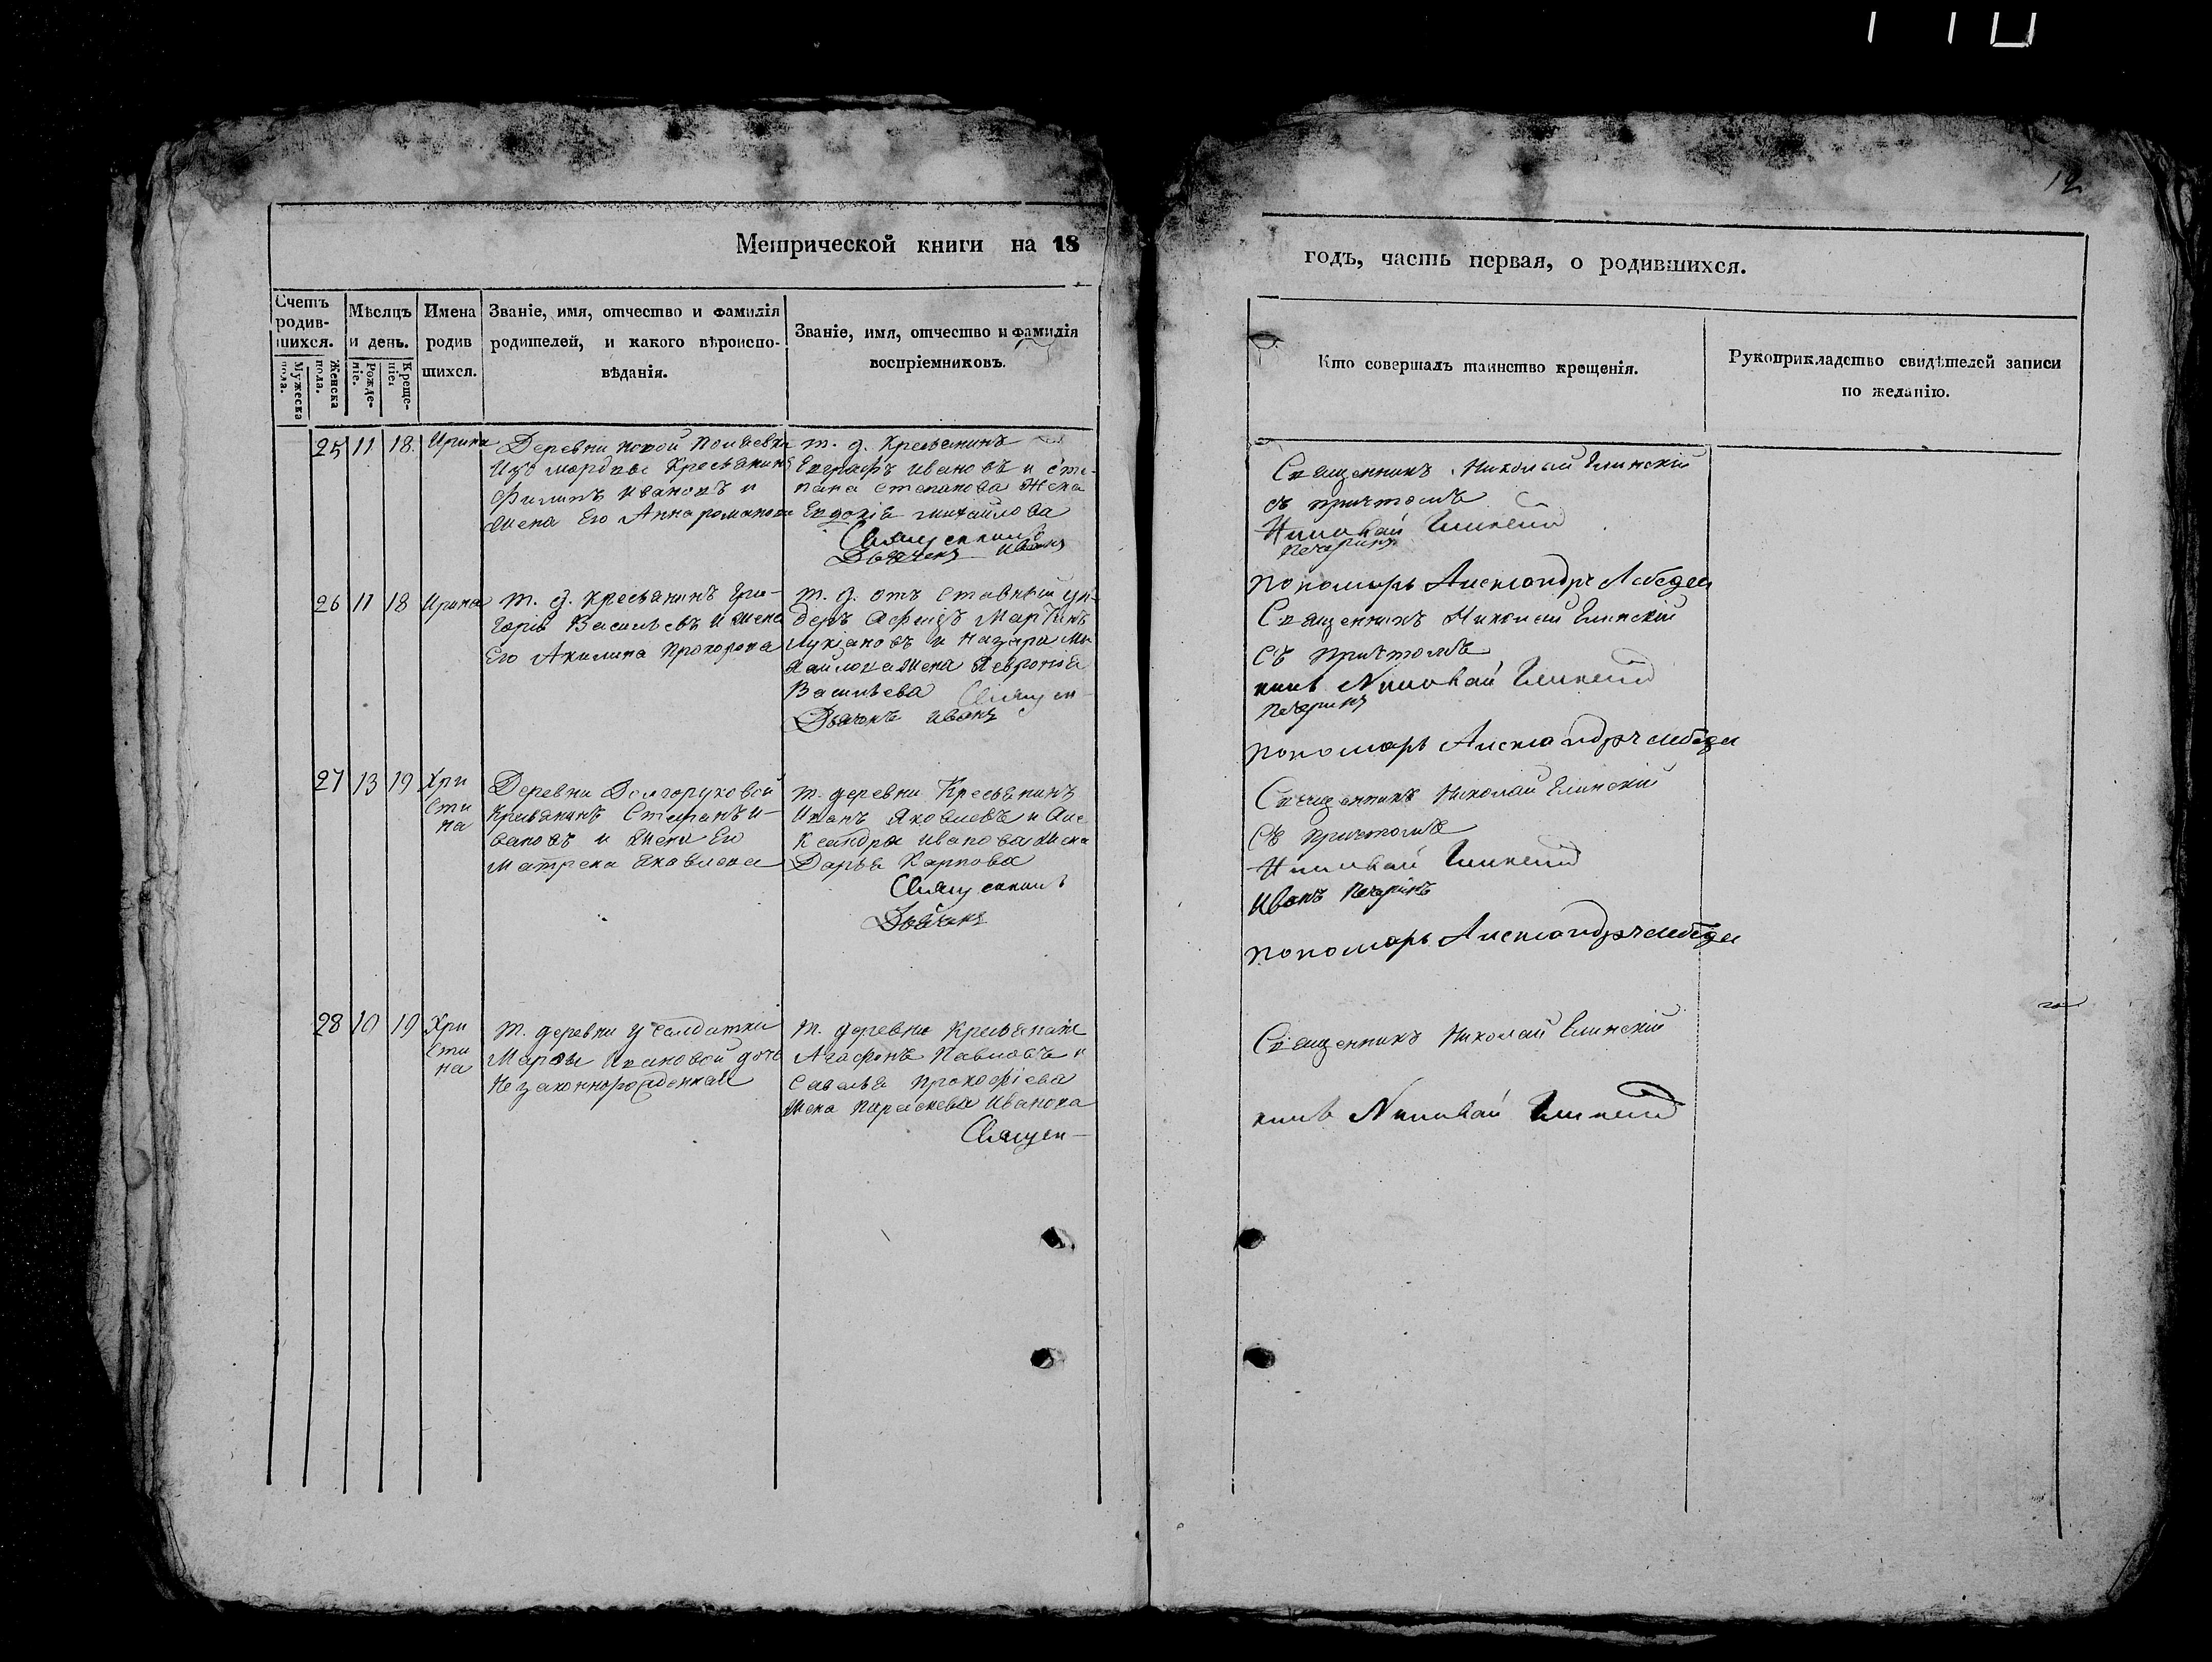 12
Метрической книги на 18
годъ, часть первая, о родившихся.
Счетъ родив-шихся.
Мужеска пола.
Женска пола.
Мѣсяцъ и день.
Рожде-ніе.
Креще-ніе.
Имена родив шихся.
Званіе, имя, отчество и фамилія
родителей, и какого вѣроиспо-
вѣданія.
Званіе, имя, отчество и фамилія
воспріемниковъ.
Кто совершалъ таинство крещенія.
Рукоприкладство свидѣтелей записи
по желанію.
25 11 18 Ирина
Деревни новой
Изъ мордвы Крестьянинъ
Филипъ Ивановъ и
жена Его Анна романова
т. д. Крестьянинъ
Евграфъ Ивановъ и Сте-
пана Степанова Жена
Евдокія михайлова
Священникъ
Дьячекъ Иванъ
Священникъ Николай
съ причтомъ
Николай
Печеринъ
пономарь Александръ Лебедев
26 11 18 Ирина
т. д. крестьянинъ Гри-
горій Васильевъ и жена
Его Акилина Прохорова
т. д. отъ ставный ун-
деръ Афицѣръ Мартинъ
Лукіановъ и Назара Ми
хайлова жена Февронія
Васильева Священ-
Дьячокъ Иванъ
Священникъ Николай
съ причтомъ
никъ Николай
Печеринъ
пономарь Александръ лебедев
27 13 19 Хри
сти
на
Деревни Долгоруковой
Крестьянинъ Степанъ И-
вановъ и жена Его
матрена Яковлева
т. деревни Крестьянинъ
Иванъ Яковлевъ и Але
ксандра Иванова жена
Дарья Карпова
Священникъ
Дьячекъ
Священникъ Николай
съ причтомъ
Николай
Иванъ Печеринъ
пономарь Александръ лебедев
28 10 19 Хри
сти
на
т. деревни у салдатки
Марфы Ивановой дочь
Незаконнорожденная
т. деревни Крестьянинъ
Агафонъ Павловъ и
Савелья Прокофіева
жена параскева Иванова
Священ-
Священникъ Николай
никъ Николай